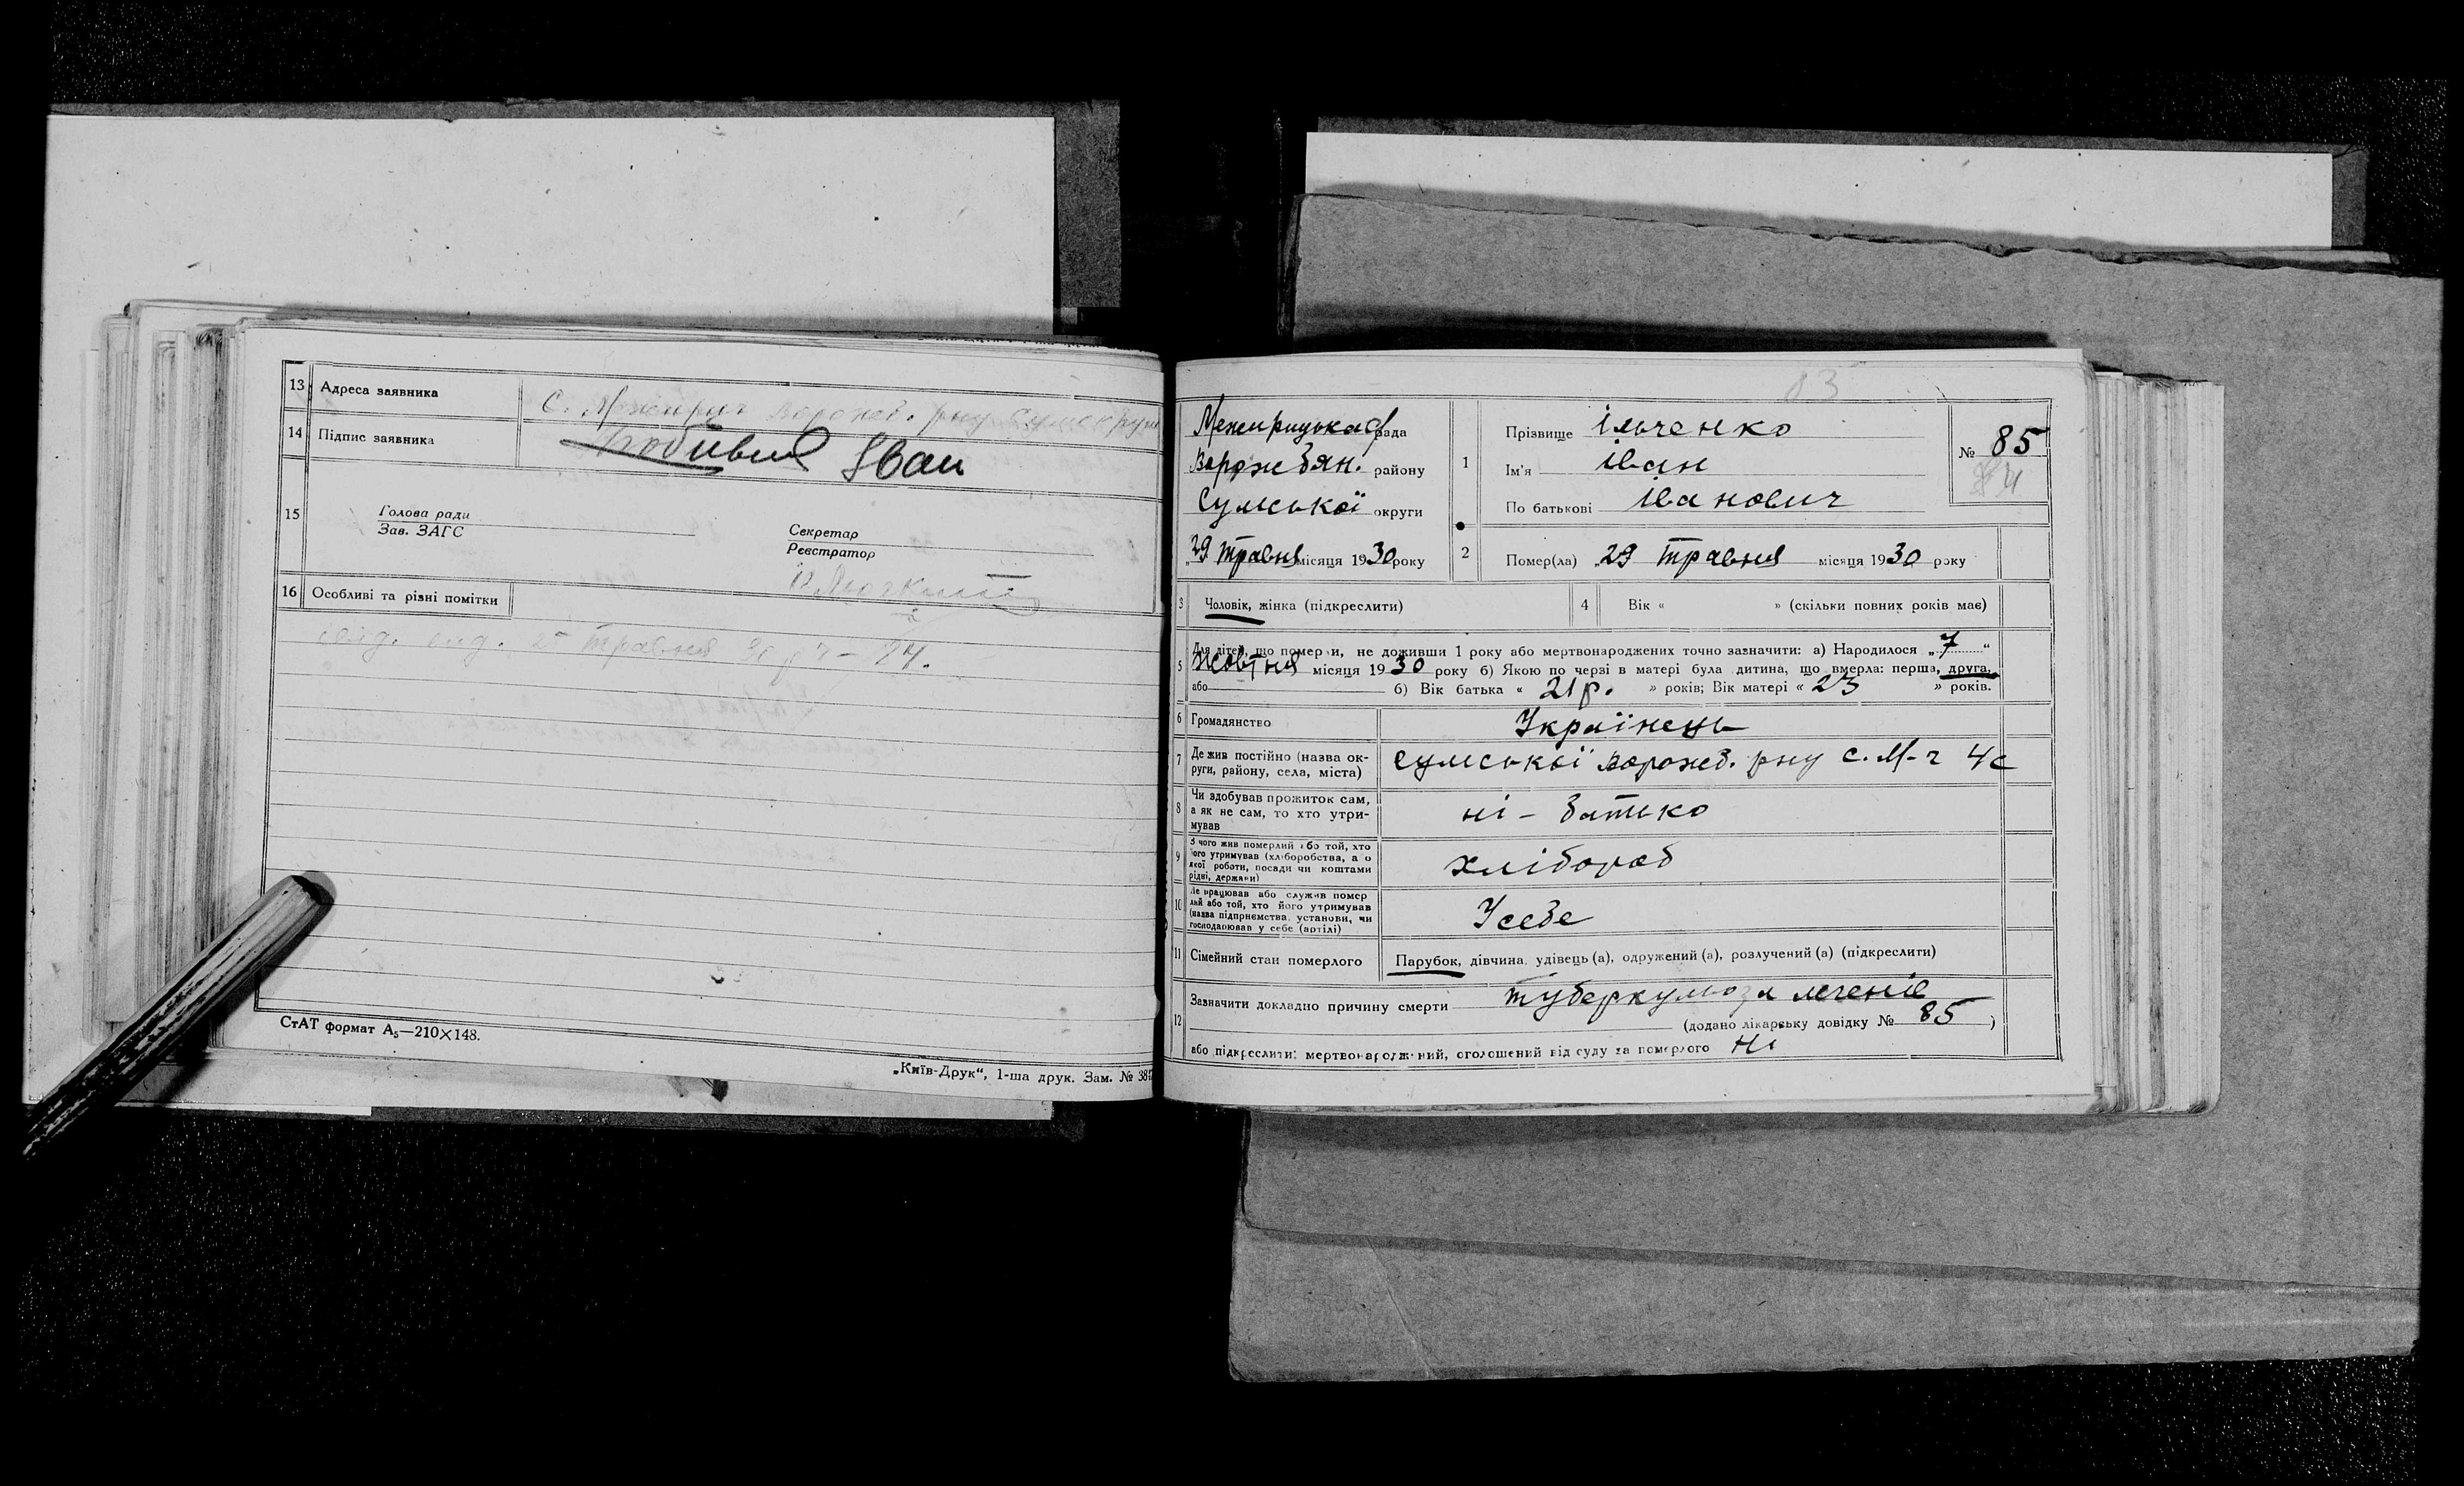 13 Адреса заявника С. Межирич Ворожб. рну Сумс окрузі
14 Підпис заявника Іван
15 Голова ради
Зав. ЗАГС
Секретар
Реєстратор
16 Особливі та різні помітки
травня 30 р
СтАТ формат А5—210×148.
„Київ-Друк“, 1-ша друк. Зам. № 38
83
Межирицька рада
Ворожбян. району
Сумської округи
„29 травня місяця 1930 року
1 Прізвище Ільченко
Ім'я Іван
По батькові Іванович
№ 85
2 Помер(ла) „29 травня місяця 1930 року
3 Чоловік, жінка (підкреслити)
4 Вік « » (скільки повних років має)
5 Для дітей, що померли, не доживши 1 року або мертвонароджених точно зазначити: а) Народилося „7“
жовтня місяця 1930 року б) Якою по черзі в матері була дитина, що вмерла: перша, друга,
або б) Вік батька « 21 р. » років; Вік матері « 23 » років.
6 Громадянство Українець
7 Де жив постійно (назва округи, району, села, міста) Сумської Ворожб. рну с. М-ч 4с
8 Чи здобував прожиток сам, а як не сам, то хто утримував ні - батько
9 З чого жив померлий або той, хто його утримував (хліборобства, а о якої роботи, посади чи коштами рідні, держави) хлібороб
10 Де працював або служив померлий або той, хто його утримував (назва підприємства, установи, чи господарював у себе (артілі) У себе
11 Сімейний стан померлого Парубок, дівчина, удівець (а), одружений (а), розлучений (а) (підкреслити)
12 Зазначити докладно причину смерти туберкульоза легеніє
(додано лікарську довідку № 85 )
або підкреслити: мертвонароджений, оголошений від суду за померлого Ні